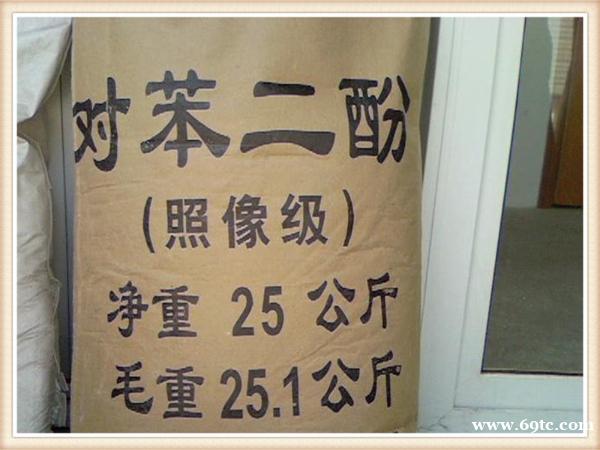 对苯二酚
(照像级)
净重 25 公斤
毛重 25.1 公斤
www.69tc.com